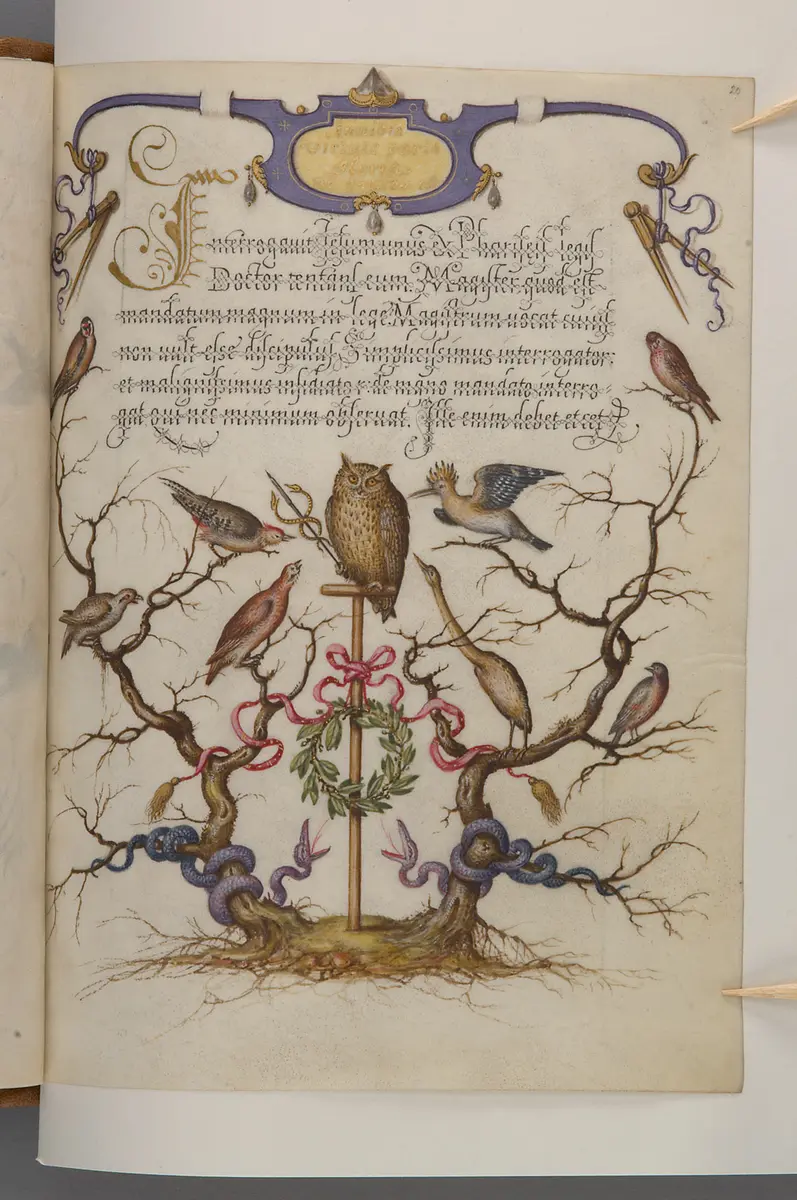 20
Interrogauit Jesum unus ex Phariseis legis
Doctor tentans eum. Magister quod est
mandatum magnum in lege. Magistrum uocat cuius
non uult esse discipulus, Simplicissimus interrogator:
et malignissimus insidiator: de magno mandato interro-
gat qui nec minimum obseruat. Ille enim debet et cet